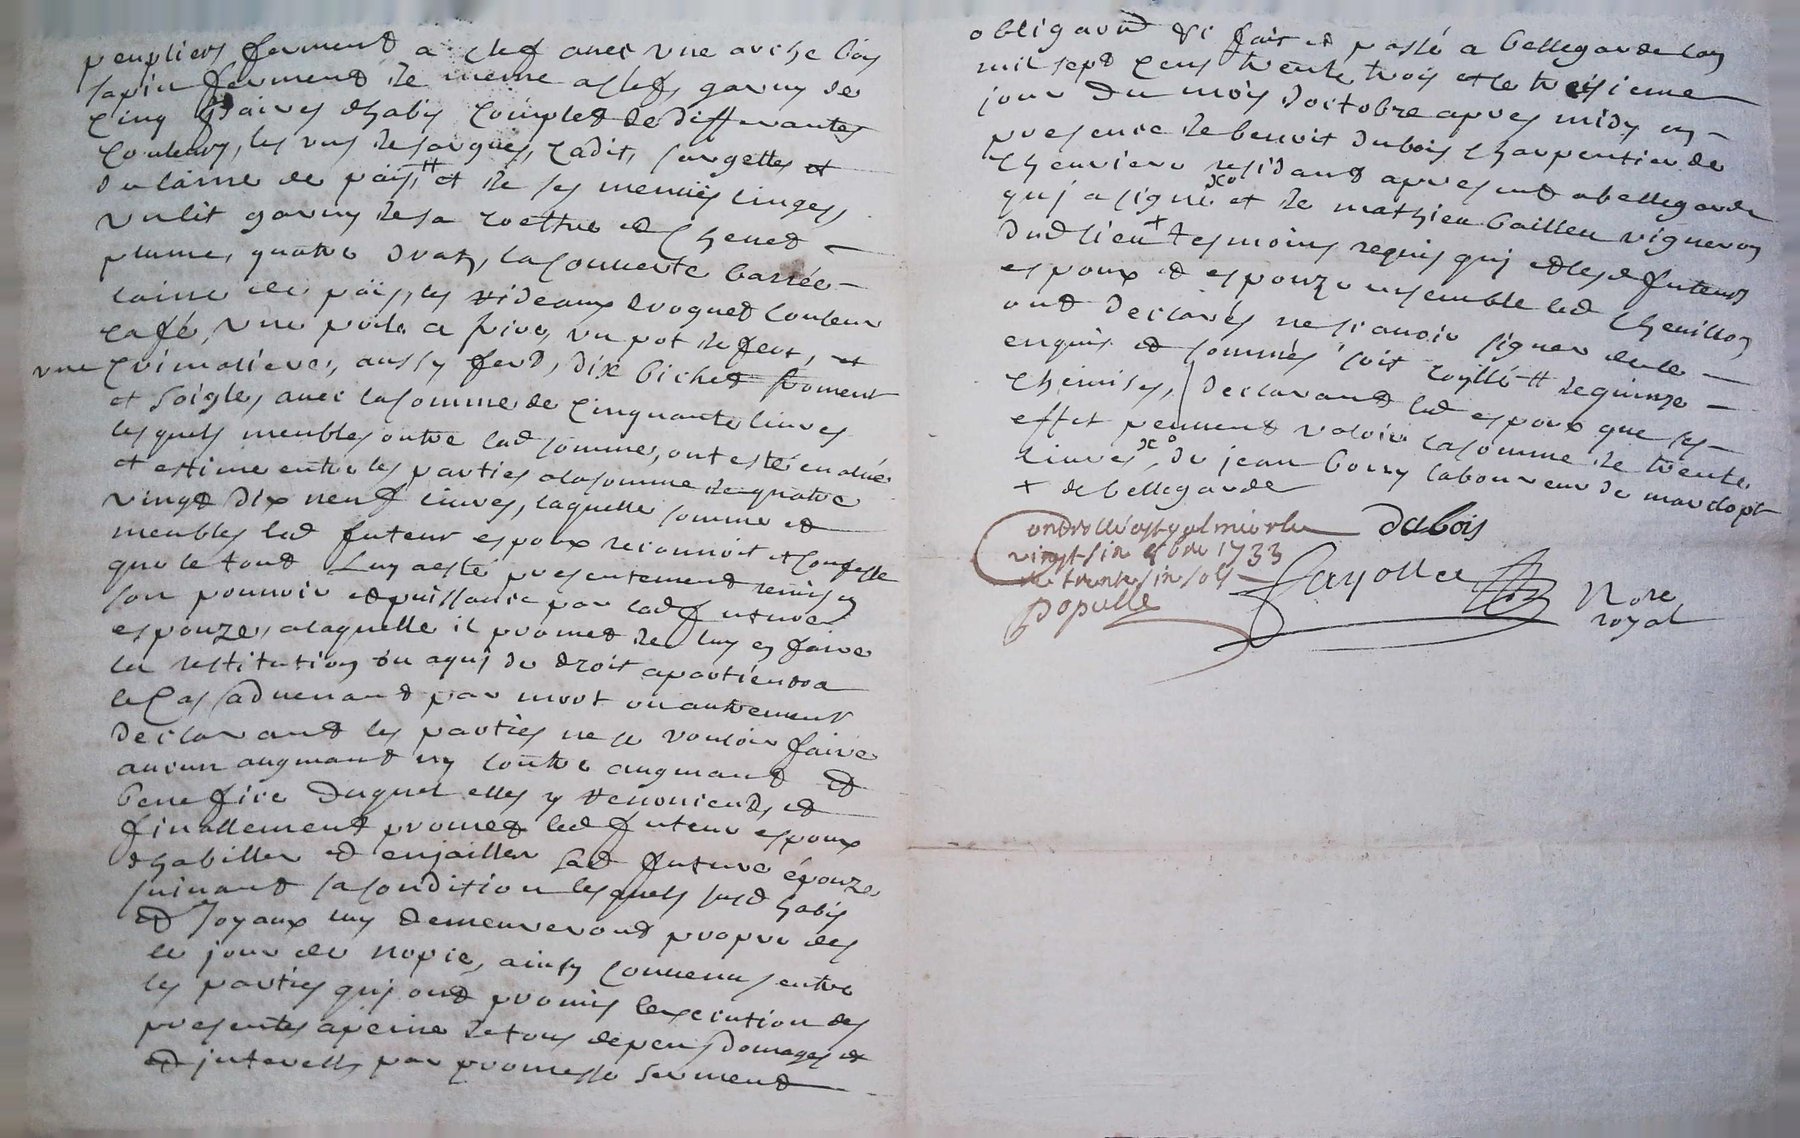 peupliers fermend a clef avec une arche bois
sapin fermend de meme a clef, garny de
cinq paires dhabis complet de differantes
couleurs, les uns de sargues, cadit, sargettes et
de laine de païs, # et de ses menües linges,
un lit garny de sa coettre et chevet
plume, quatre drats, la couverte barrée
laine de païs, les rideaux droguet couleur
café, une poile a frire, un pot de fert, et
une crimaliere, aussy fert, dix bichet froment
et soigle, avec la somme de cinquante livres
les quels meubles outre lad somme, ont esté evalué
et estimé entre les parties a la somme de quatre
vingt dix neuf livres, laquelle somme et
meubles led futeur espoux reconnoit et confesse
que le tout luy a esté presentement remis en
son pouvoir et puissance par lad future
espouze, a laquelle il promet de luy en faire
la restitution ou a qui de droit apartiendra
le cas advenant par mort ou autrement
declarand les parties ne se vouloir faire
aucun augmant ny contre augmant et
benefice duquel elles y renoncient, et
finallement promet led futeur espoux
dhabiller et enjailler lad future épouze
suivant sa condition lesquels susd habis
et joyaux luy demeureront propre des
le jour de nopce, ainsy convenus entre
les parties qui ont promis lexecution des
presentes a peine de tous depens domages et
et interests par promesse serment
obligaon &c fait et passé a bellegarde lan
mil sept cens trente trois et le treisieme
jour du mois doctobre apres midy en
presence de benoit dubois charpentier de
chevriere residant a present a bellegarde
qui a signé xo et de mathieu baillieu vigneron
dud lieu + tesmoins requis qui et lesd futeurs
espoux et espouze ensemble led chevillon
ont declarés ne scavoir signer de ce
enquis et sommés soit royllé # de quinze
chemises, declarand led espoux que ses
effet peuvent valoir la somme de trente
livres xo de jean bory laboureur de
+ de bellegarde
dubois
controllé a st galmier le
vingt six 8bre 1733
trente six sols
populle
Fayolle
Nore
royal